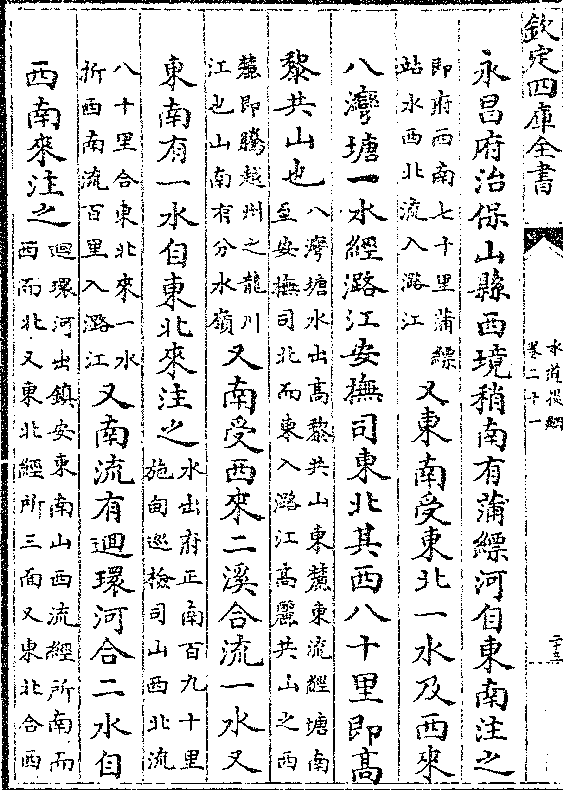 欽定四庫全書
水道提綱
卷二十一
二十五
永昌府治保山縣西境稍南有蒲縹河自東南注之
即府西南七十里蒲縹
站水西北流入潞江
又東南受東北一水及西來
八灣塘一水經潞江安撫司東北其西八十里即高
黎共山也
八灣塘水出高黎共山東麓東流經塘南
至安撫司北而東入潞江高麗共山之西
麓即騰越州之龍川
江也山南有分水嶺
又南受西來二溪合流一水又
東南有一水自東北來注之
水出府正南百九十里
施甸巡檢司山西北流
八十里合東北來一水
折西南流百里入潞江
又南流有迴環河合二水自
西南來注之
迴環河出鎮安東南山西流經所南而
西而北又東北經所三面又東北合西